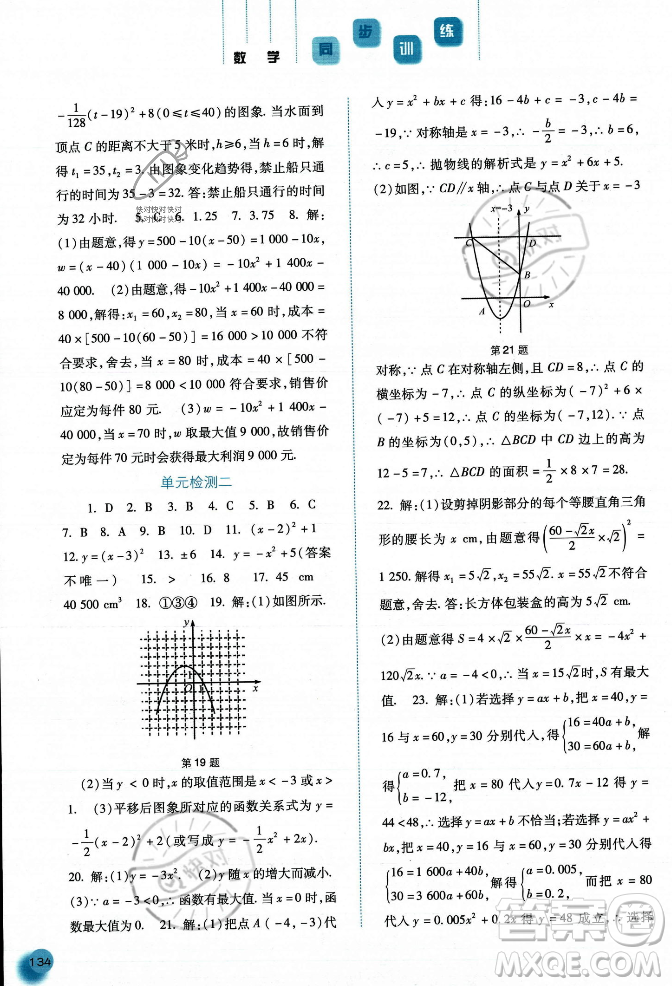 数 学 同 步 训 练
-1/128(t-19)²+8(0≤t≤40)的图象. 当水面到
顶点 C 的距离不大于 5 米时,h≥6,当 h=6 时,解
得 t₁=35,t₂=3.由图象变化趋势得,禁止船只通
行的时间为 35-3=32. 答:禁止船只通行的时间
为 32 小时. 5. C 6. 1.25 7. 3.75 8. 解:
(1)由题意得,y=500-10(x-50)=1 000-10x,
w=(x-40)(1 000-10x)=-10x²+1 400x-
40 000. (2)由题意得,-10x²+1 400x-40 000=
8 000,解得:x₁=60,x₂=80,当 x=60 时,成本=
40×[500-10(60-50)]=16 000>10 000 不符
合要求,舍去,当 x=80 时,成本=40×[500-
10(80-50)]=8 000<10 000 符合要求. 销售价
应定为每件 80 元. (3)w=-10x²+1 400x-
40 000,当 x=70 时,w 取最大值 9 000,故销售价
为每件 70 元时会获得最大利润 9 000 元.
单元检测二
1. D 2. B 3. A 4. D 5. B 6. C
7. B 8. A 9. D 10. B 11. (x-2)²+1
12. y=(x-3)² 13. ±6 14. y=-x²+5(答案
不唯一) 15. > 16. 2 17. 45 cm
40 500 cm³ 18. ①③④ 19. 解:(1)如图所示.
y
1
O 1 x
第 19 题
(2)当 y<0 时,x 的取值范围是 x<-3 或 x>
1. (3)平移后图象所对应的函数关系式为 y=
-1/2(x-2)²+2(或写成 y=-1/2x²+2x).
20. 解:(1)y=-3x². (2)y 随 x 的增大而减小.
(3)∵a=-3<0,∴函数有最大值. 当 x=0 时,函
数最大值为 0. 21. 解:(1)把点 A(-4,-3)代
入 y=x²+bx+c 得:16-4b+c=-3,c-4b=
-19,∵对称轴是 x=-3,∴-b/2=-3,∴b=6,
∴c=5,∴抛物线的解析式是 y=x²+6x+5.
(2)如图,∵CD∥x 轴,∴点 C 与点 D 关于 x=-3
x=-3 y
C D
B
A O x
第 21 题
对称,∵点 C 在对称轴左侧,且 CD=8,∴点 C 的
横坐标为-7,∴点 C 的纵坐标为(-7)²+6×
(-7)+5=12,∴点 C 的坐标为(-7,12). ∵点
B 的坐标为(0,5),∴△BCD 中 CD 边上的高为
12-5=7,∴△BCD 的面积=1/2×8×7=28.
22. 解:(1)设剪掉阴影部分的每个等腰直角三角
形的腰长为 x cm,由题意得:((60-√2x)/2×√2)²=
1 250. 解得 x₁=5√2,x₂=55√2不符合
题意,舍去. 答:长方体包装盒的高为 5√2 cm.
(2)由题意得 S=4×√2×(60-√2x)/2×x=-4x²+
120√2x. ∵a=-4<0,∴当 x=15√2时,S 有最大
值. 23. 解:(1)若选择 y=ax+b,把 x=40,y=
16 与 x=60,y=44 分别代入得,{16=40a+b, 44=60a+b, 解
得{a=0.7, b=-12, 把 x=80 代入 y=0.7x-12 得 y=
44<48,∴选择 y=ax+b 不恰当;若选择 y=ax²
+bx,把 x=40,y=16 与 x=60,y=44 分别代入得
{16=1 600a+40b, 44=3 600a+60b, 解得{a=0.005, b=0.2, 而把 x=80
代入 y=0.005x²+0.2x 得 y=48 成立,∴选择
134
快对快对快对
快对快对快对
快对
答案
MXQE.COM